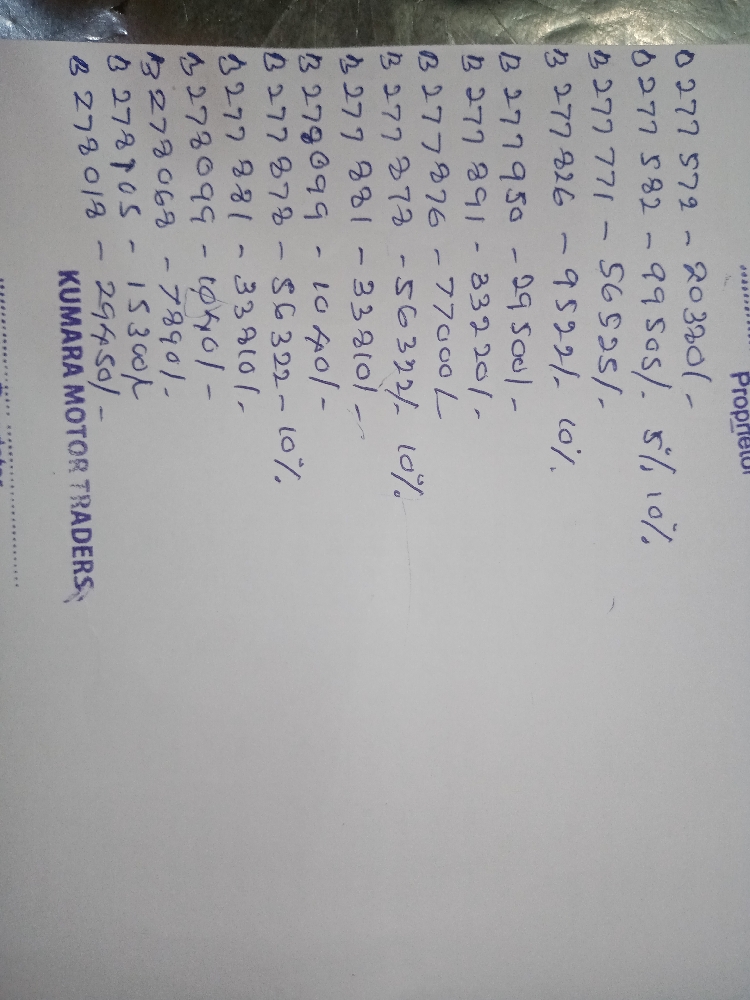 Proprietor
B 277 572 - 20320/-
B 277 582 - 99505/- 5% 10%
B 277 771 - 56525/-
B 277 826 - 9522/- 10%
B 277 950 - 29500/-
B 277 891 - 33220/-
B 277 876 - 77000/-
B 277 878 - 56322/- 10%
B 277 881 - 33810/-
B 278099 - 1040/-
B 277 878 - 56322 - 10%
B 277 881 - 33810/-
B 278099 - 1040/-
B 278068 - 7890/-
B 278105 - 15300/-
B 278018 - 29450/-
KUMARA MOTOR TRADERS